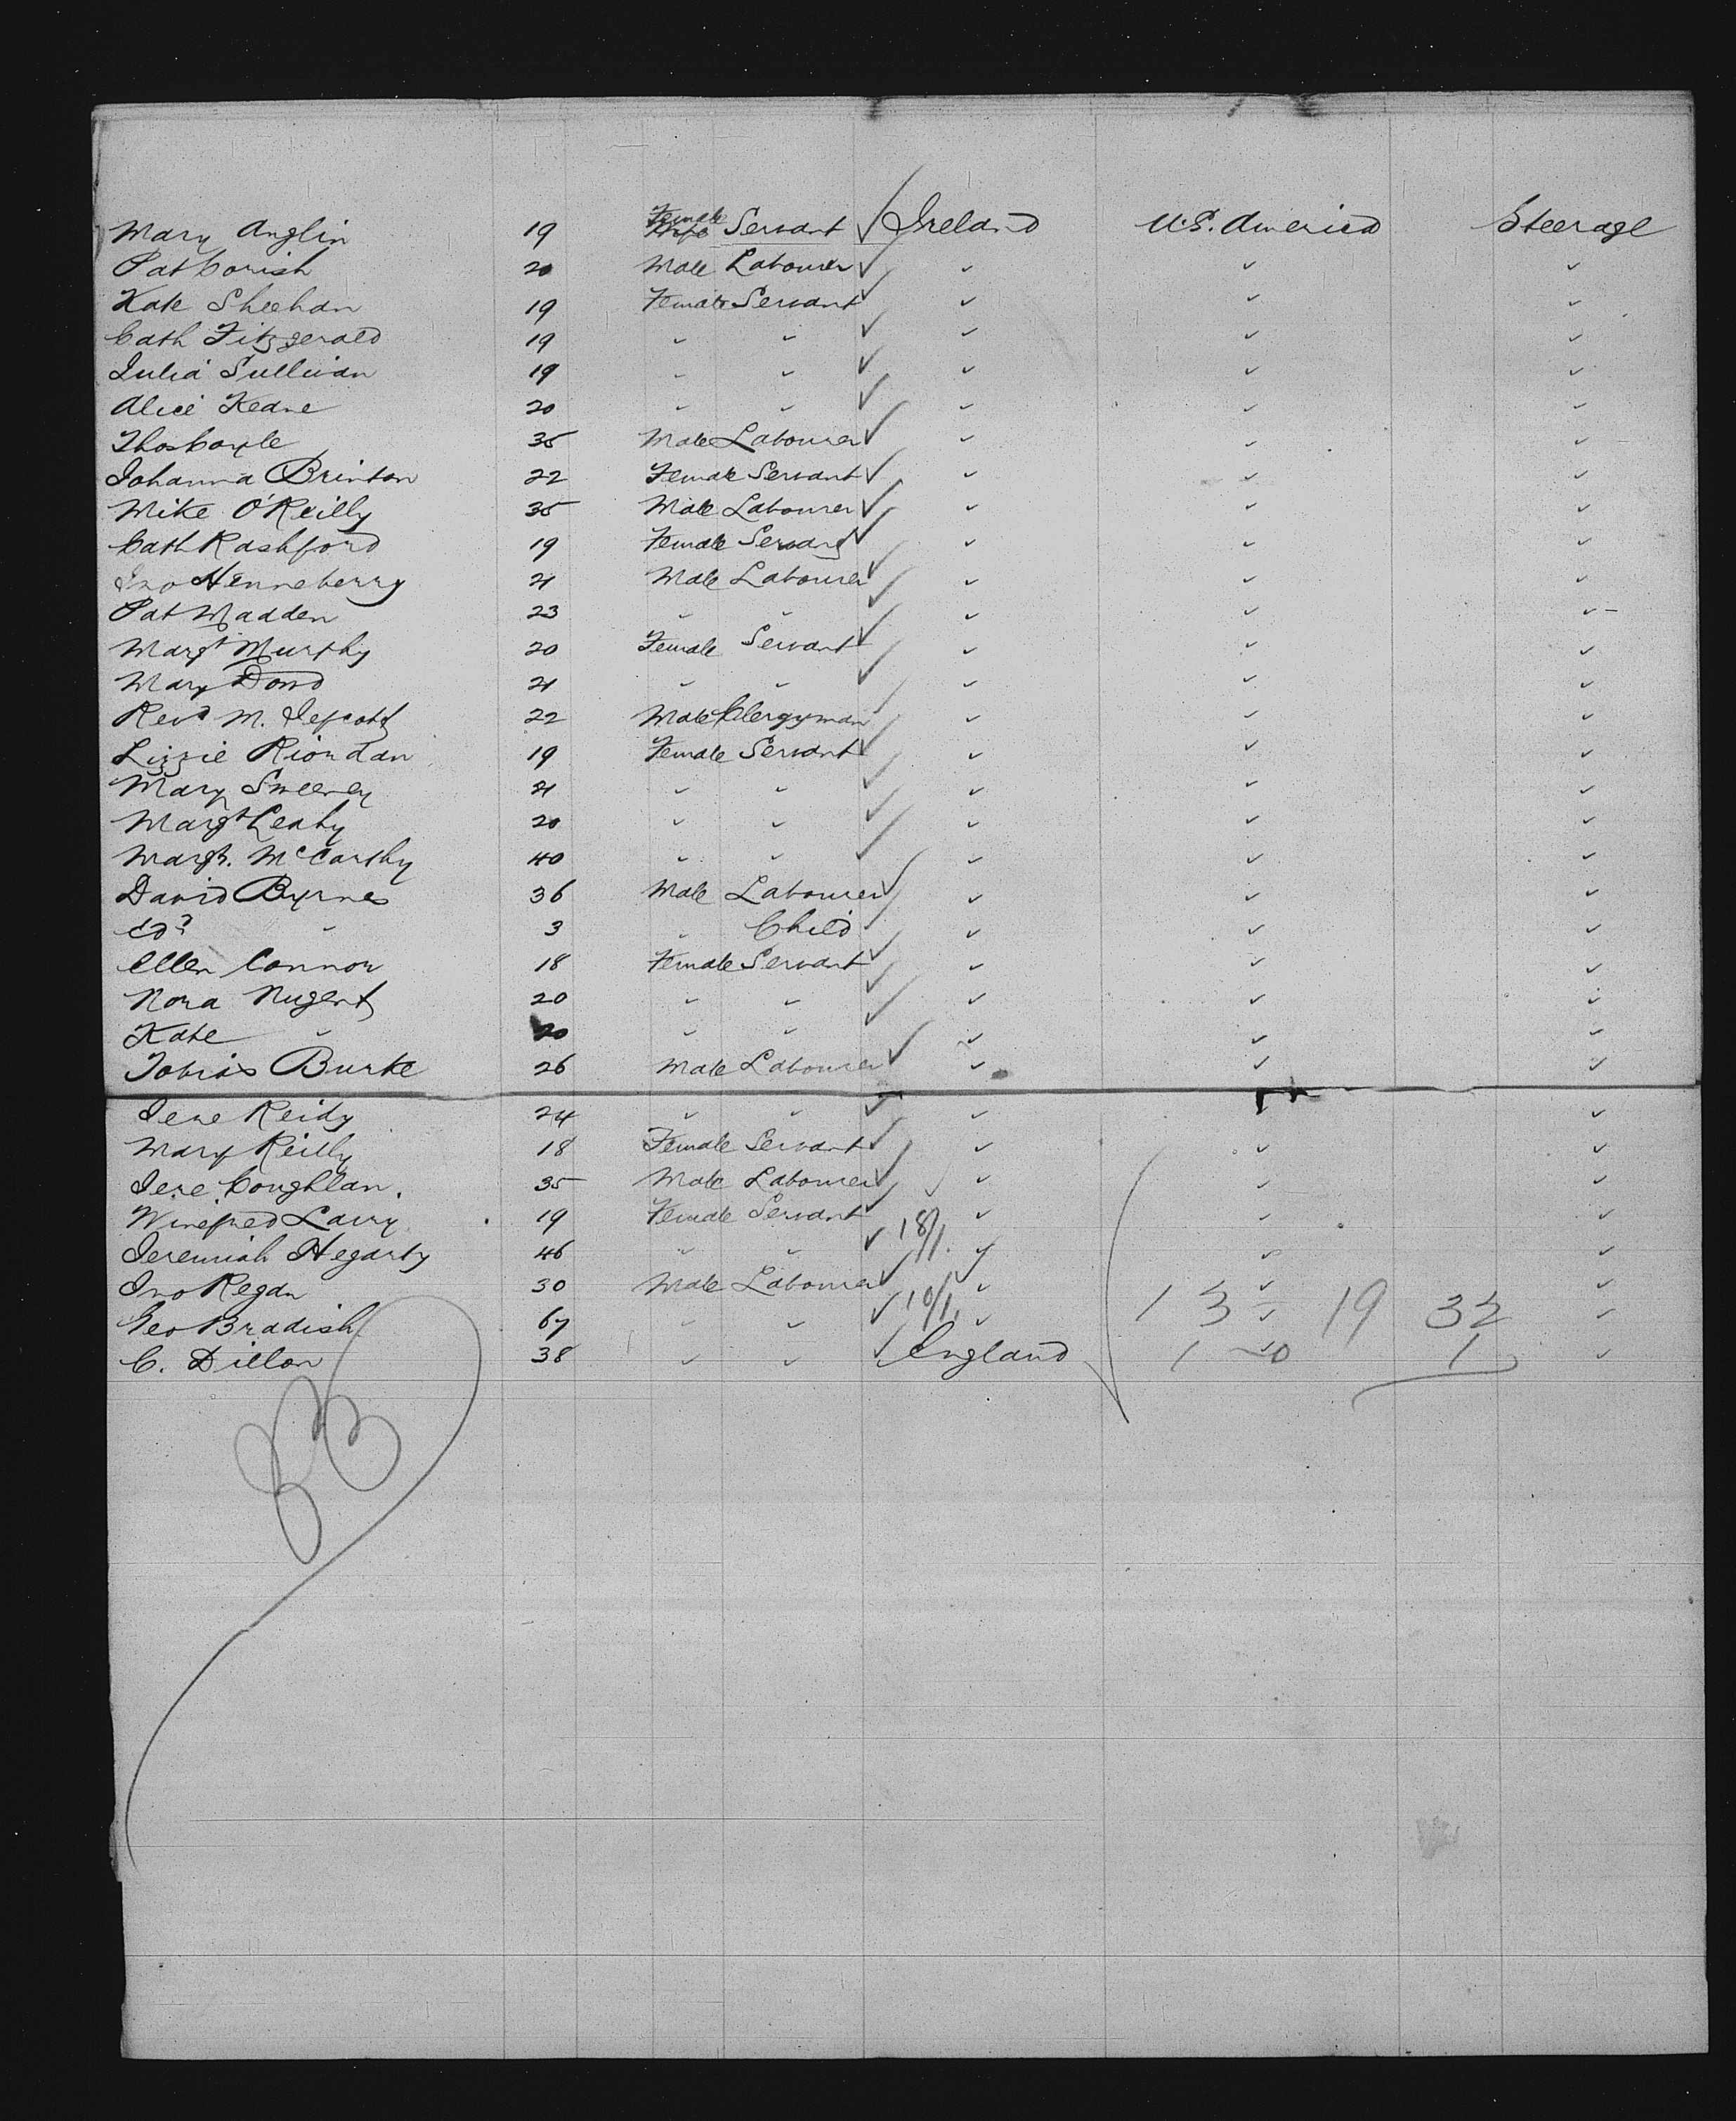 Mary Anglin 19 Female Servant Ireland U.S. America Steerage
Pat Corish 20 Male Labourer " " "
Kate Sheehan 19 Female Servant " " "
Cath Fitzgerald 19 " " " " "
Julia Sullivan 19 " " " " "
Alice Keane 20 " " " " "
Thos Coyle 35 Male Labourer " " "
Johanna Brinton 22 Female Servant " " "
Mike O'Reilly 35 Male Labourer " " "
Cath Rashford 19 Female Servant " " "
Jno Henneberry 21 Male Labourer " " "
Pat Madden 23 " " " " "
Margt Murphy 20 Female Servant " " "
Mary Dowd 21 " " " " "
Revd M. 22 Male Clergyman " " "
Lizzie Riordan 19 Female Servant " " "
Mary Sweeney 21 " " " " "
Margt Leahy 20 " " " " "
Margt. McCarthy 40 " " " " "
David Byrnes 36 Male Labourer " " "
Edd " 3 " Child " " "
Ellen Connor 18 Female Servant " " "
Nora Nugent 20 " " " " "
Kate " 20 " " " " "
Tobias Burke 26 Male Labourer " " "
Jere Reidy 24 " " " " "
Mary Reilly 18 Female Servant " " "
Jere Coughlan. 35 Male Labourer " " "
Winefred 19 Female Servant " " "
Jeremiah Hegarty 46 " " 18/1. " " "
Jno Regan 30 Male Labourer " " "
Geo Bradish 67 " " 10/1, " " 13 19 32 "
C. Dillon 38 " " England " 1 0 1 "
33